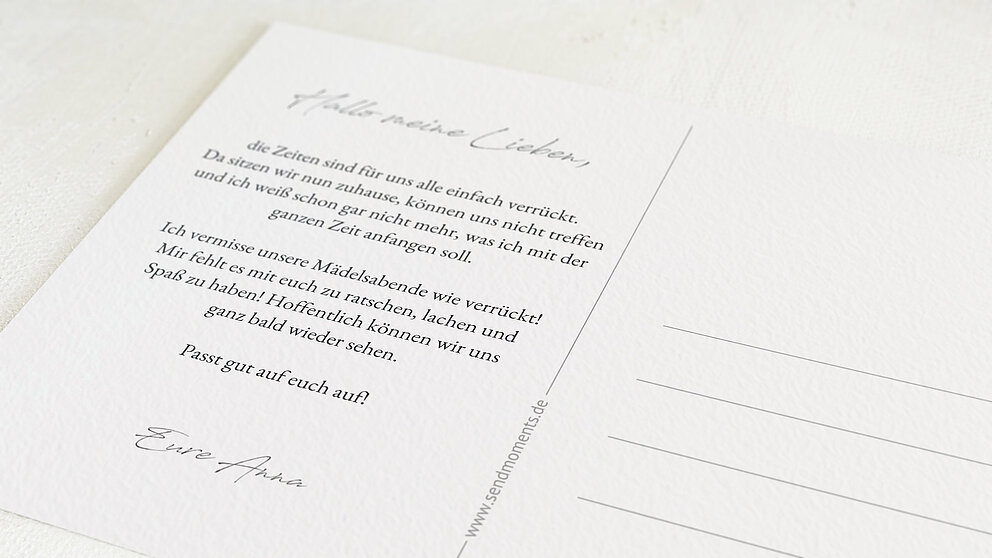 Hallo meine Lieben,
die Zeiten sind für uns alle einfach verrückt.
Da sitzen wir nun zuhause, können uns nicht treffen
und ich weiß schon gar nicht mehr, was ich mit der
ganzen Zeit anfangen soll.
Ich vermisse unsere Mädelsabende wie verrückt!
Mir fehlt es mit euch zu ratschen, lachen und
Spaß zu haben! Hoffentlich können wir uns
ganz bald wieder sehen.
Passt gut auf euch auf!
Eure Anna
www.sendmoments.de